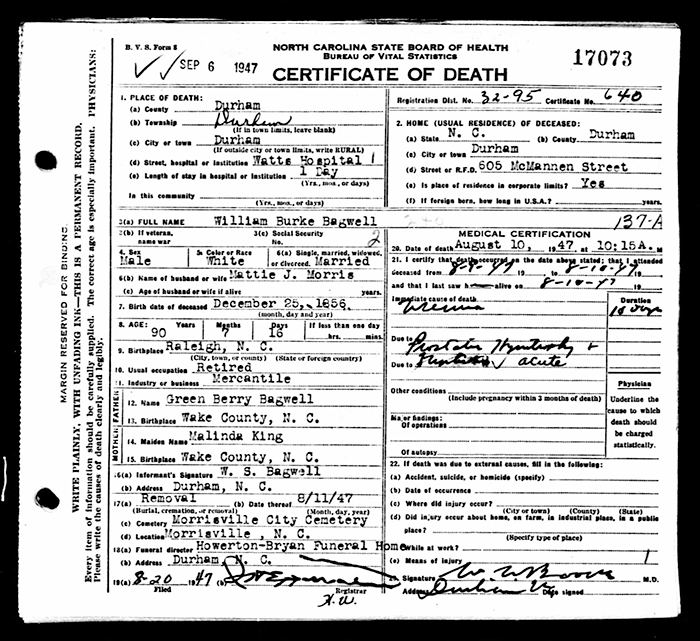 B. V. S. Form 8
NORTH CAROLINA STATE BOARD OF HEALTH
BUREAU OF VITAL STATISTICS
17073
SEP 6 1947
CERTIFICATE OF DEATH
MARGIN RESERVED FOR BINDING.
WRITE PLAINLY, WITH UNFADING INK—THIS IS A PERMANENT RECORD.
Every item of information should be carefully supplied. The correct age is especially important. PHYSICIANS:
Please write the causes of death clearly and legibly.
Registration Dist. No. 32-95 Certificate No. 640
1. PLACE OF DEATH:
(a) County Durham
(b) Township Durham
(If in town limits, leave blank)
(c) City or town Durham
(If outside city or town limits, write RURAL)
(d) Street, hospital or institution Watts Hospital
(e) Length of stay in hospital or institution 1 Day
(Yrs., mos., or days)
In this community
(Yrs., mos., or days)
2. HOME (USUAL RESIDENCE) OF DECEASED:
(a) State N. C. (b) County Durham
(c) City or town Durham
(d) Street or R.F.D. 605 McMannen Street
(e) Is place of residence in corporate limits? Yes
(f) If foreign born, how long in U.S.A.? years.
3(a) FULL NAME William Burke Bagwell
3(b) If veteran, name war
3(c) Social Security No.
2
4. Sex Male
5. Color or Race White
6(a) Single, married, widowed, or divorced. Married
6(b) Name of husband or wife Mattie J. Morris
(c) Age of husband or wife if alive years
7. Birth date of deceased December 25, 1856
(month, day and year)
8. AGE 90 Years 7 Months 16 Days If less than one day
hrs. min.
9. Birthplace Raleigh, N. C.
(City, town, or county) (State or foreign country)
10. Usual occupation Retired
11. Industry or business Mercantile
FATHER
12. Name Green Berry Bagwell
13. Birthplace Wake County, N. C.
MOTHER
14. Maiden Name Malinda King
15. Birthplace Wake County, N. C.
16(a) Informant's Signature W. S. Bagwell
(b) Address Durham, N. C.
17(a) Removal (b) Date thereof 8/11/47
(Burial, cremation, or removal) (Month, day, year)
(c) Cemetery Morrisville City Cemetery
(d) Location Morrisville , N. C.
18(a) Funeral director Howerton-Bryan Funeral Home
(b) Address Durham N. C.
19(a) 8-20 1947 (b)
Filed Registrar
H. W.
137-A
MEDICAL CERTIFICATION
20. Date of death August 10, 1947 at 10:15A. M
21. I certify that death occurred on the date above stated; that I attended
deceased from 8-9-47 19 to 8-10-47 19
and that I last saw h alive on 8-10-47 19
Immediate cause of death Duration
Uremia 10 days
Due to Prostatic Hypertrophy +
Due to acute
Other conditions
(Include pregnancy within 3 months of death)
Major findings:
Of operations
Of autopsy
Physician
Underline the cause to which death should be charged statistically.
22. If death was due to external causes, fill in the following:
(a) Accident, suicide, or homicide (specify)
(b) Date of occurrence
(c) Where did injury occur?
(City or town) (County) (State)
(d) Did injury occur about home, on farm, in industrial place, in a public place?
(Specify type of place)
While at work?
(e) Means of injury
23. Signature M.D.
Address Durham Date signed